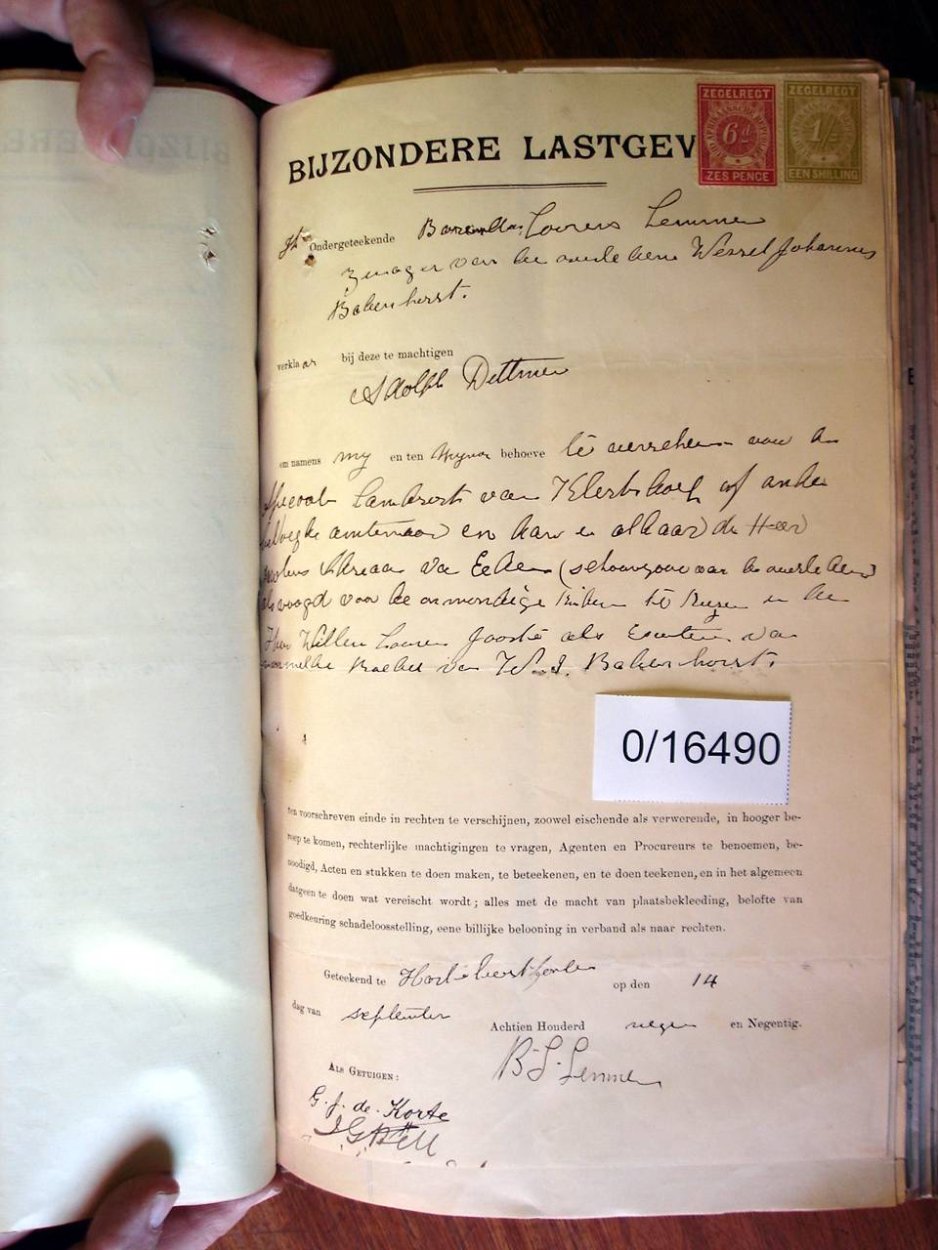 BIJZONDERE LASTGEV
ZEGELREGT
6d
ZES PENCE
ZEGELREGT
1/-
EEN SHILLING
Ondergeteekende Lourens Lemmer
zwager van de overledene Wessel Johannes
Bakenhorst.
verklaar bij deze te machtigen
Adolph Dettmer
om namens my en ten behoeve te verschenen voor de
Landrost van Klerksdorp of ander
amtenaar en daar en aldaar de Heer
van Eeden (schoonzoon van de overledene)
voogd voor de onmondige te en de
Heer Willem Jooste als van
Boedel van W. J. Bakenhorst.
0/16490
ten voorschreven einde in rechten te verschijnen, zoowel eischende als verwerende, in hooger be-
roep te komen, rechterlijke machtigingen te vragen, Agenten en Procureurs te benoemen, be-
noodigd, Acten en stukken te doen maken, te beteekenen, en te doen teekenen, en in het algemeen
datgeen te doen wat vereischt wordt; alles met de macht van plaatsbekleeding, belofte van
goedkeuring schadeloosstelling, eene billijke belooning in verband als naar rechten.
Geteekend te op den 14
dag van september
Achtien Honderd negen en Negentig.
B. L. Lemmer
ALS GETUIGEN:
G. J. de Korte